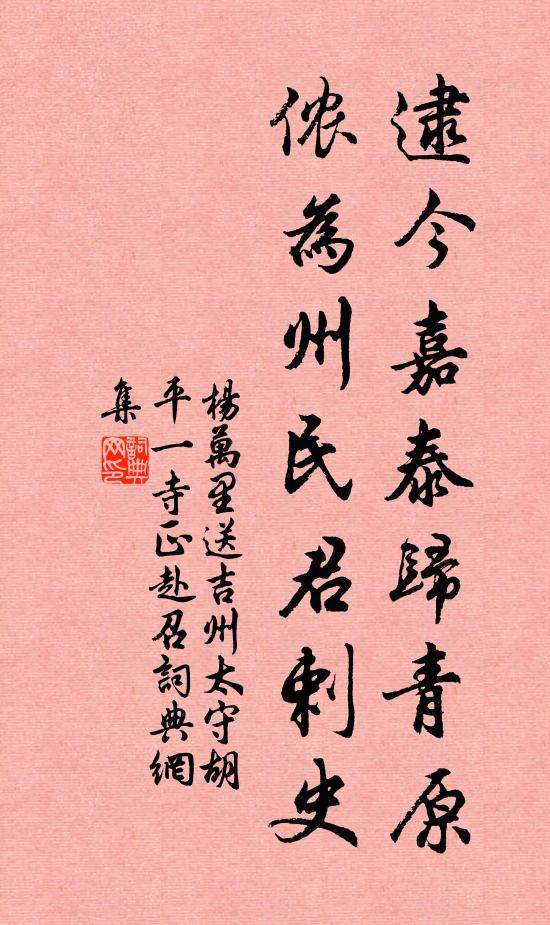 逮今嘉泰歸青原
侬為州民君刺史
楊萬里送吉州太守胡
平一寺正赴召詞典網
集
詞典網印